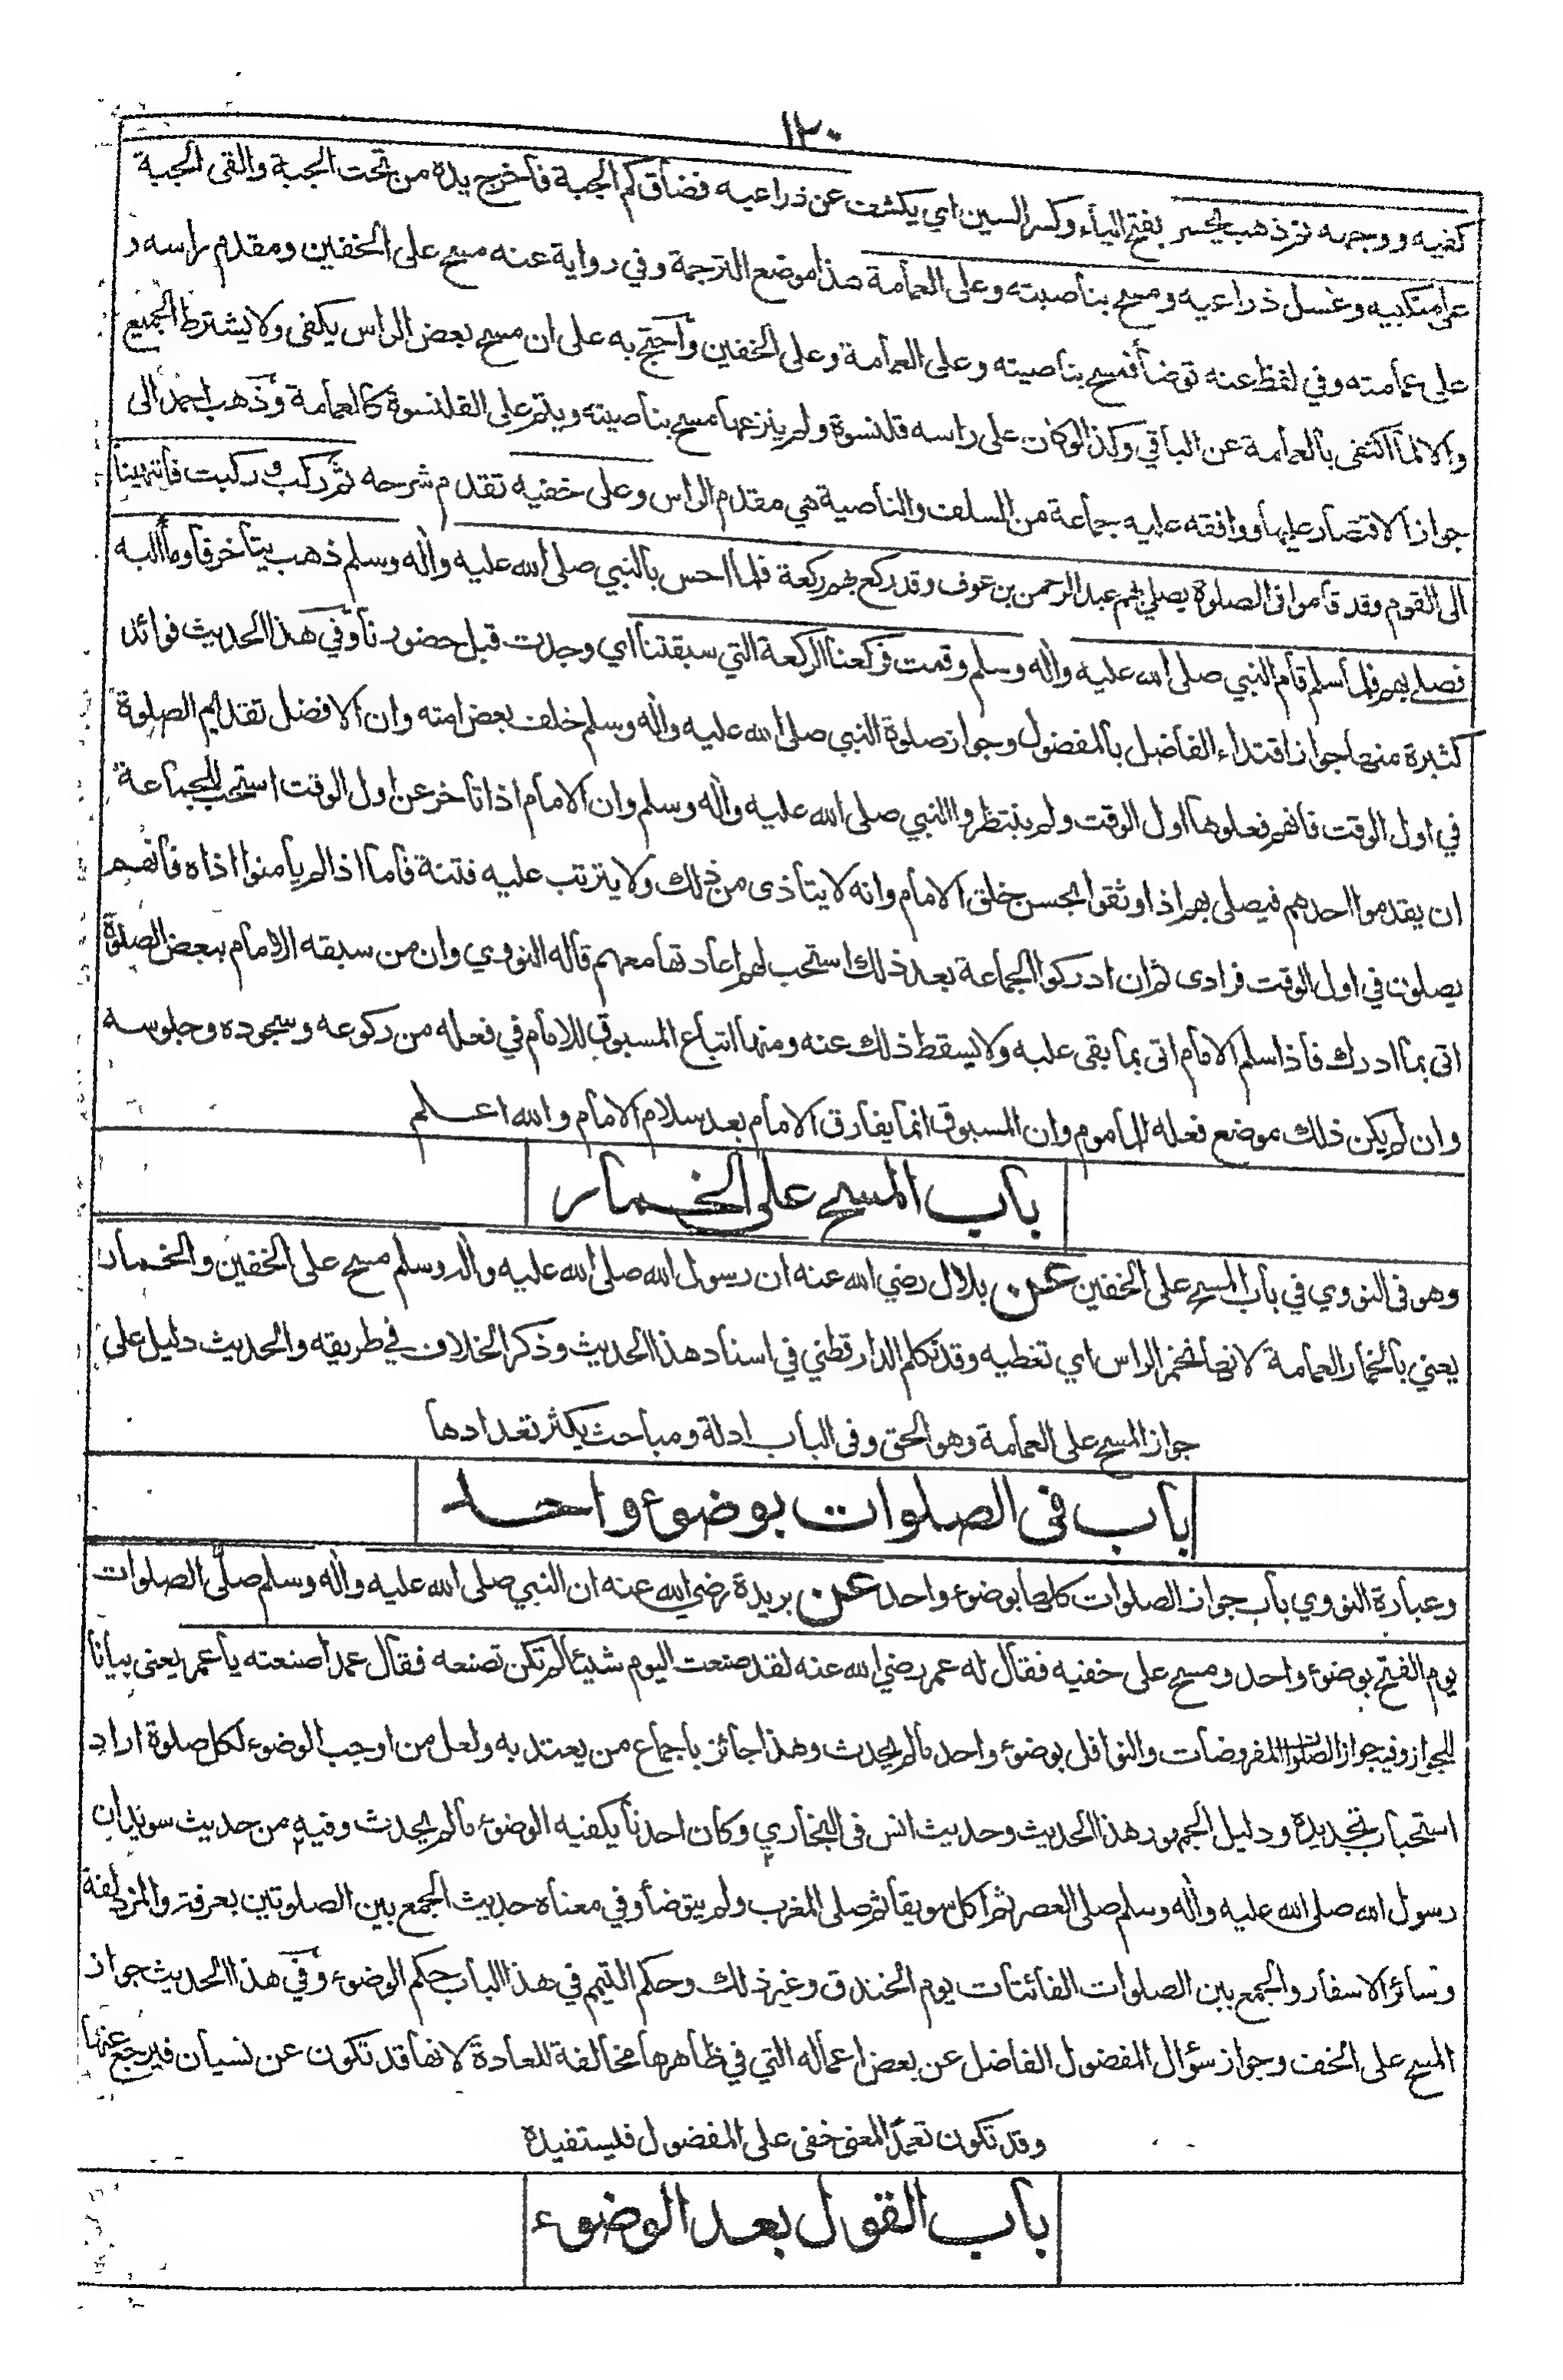 ١٢٠
كفيه ووجهه ثم ذهب يحسر بفتح الياء وكسر السين اي يكشف عن ذراعيه فضاق كم الجبة فاخرج يده من تحت الجبة والقى الجبة
على منكبيه وغسل ذراعيه ومسح بناصيته وعلى العمامة هذا موضع الترجمة وفي رواية عنه مسح على الخفين ومقدم راسه و
على عمامته وفي لفظ عنه توضأ فمسح بناصيته وعلى العمامة وعلى الخفين واحتج به على ان مسح بعض الراس يكفى ولا يشترط الجميع
والا لما اكتفى بالعمامة عن الباقي وكذا لو كان على راسه قلنسوة ولم ينزعها مسح بناصيته ويتم على القلنسوة كالعمامة وذهب احمد الى
جواز الاقتصار عليها ووافقه عليه جماعة من السلف والناصية هي مقدم الراس وعلى خفيه تقدم شرحه ثم ركب وركبت فانتهينا
الى القوم وقد قاموا فى الصلوة يصلي بهم عبد الرحمن بن عوف وقد ركع بهم ركعة فلما احس بالنبي صلى الله عليه واٰله وسلم ذهب يتأخر فأومأ اليه
فصلى بهم فلما سلم قام النبي صلى الله عليه واٰله وسلم وقمت فركعنا الركعة التي سبقتنا اي وجدت قبل حضورنا وفي هذا الحديث فوائد
كثيرة منها جواز اقتداء الفاضل بالمفضول وجواز صلوة النبي صلى الله عليه واٰله وسلم خلف بعض امته وان الافضل تقديم الصلوة
في اول الوقت فانهم فعلوها اول الوقت ولم ينتظروا النبي صلى الله عليه واٰله وسلم وان الامام اذا تأخر عن اول الوقت استحب للجماعة
ان يقدموا احدهم فيصلى بهم اذا وثقوا بحسن خلق الامام وانه لا يتأذى من ذلك ولا يترتب عليه فتنة فاما اذا لم يأمنوا اذاه فانهم
يصلون في اول الوقت فرادى ثم ان ادركوا الجماعة بعد ذلك استحب لهم اعادتها معهم قاله النووي وان من سبقه الامام ببعض الصلوة
اتى بما ادرك فاذا سلم الامام اتى بما بقى عليه ولا يسقط ذلك عنه ومنها اتباع المسبوق للامام في فعله من ركوعه وسجوده وجلوسه
وان لم يكن ذلك موضع فعله للمأموم وان المسبوق انما يفارق الامام بعد سلام الامام والله اعلم
باب المسح على الخمار
وهو فى النووي في باب المسح على الخفين عن بلال رضي الله عنه ان رسول الله صلى الله عليه واٰله وسلم مسح على الخفين والخمار
يعني بالخمار العمامة لانها تخمر الراس اي تغطيه وقد تكلم الدارقطني في اسناد هذا الحديث وذكر الخلاف في طريقه والحديث دليل على
جواز المسح على العمامة وهو الحق وفى الباب ادلة ومباحث يكثر تعدادها
باب فى الصلوات بوضوء واحد
وعبارة النووي باب جواز الصلوات كلها بوضوء واحد عن بريدة رضي الله عنه ان النبي صلى الله عليه واٰله وسلم صلّى الصلوات
يوم الفتح بوضوء واحد ومسح على خفيه فقال له عمر رضي الله عنه لقد صنعت اليوم شيئا لم تكن تصنعه فقال عمدا صنعته يا عمر يعنى بيانا
للجواز وفيه جواز الصلوات المفروضات والنوافل بوضوء واحد مالم يحدث وهذا جائز باجماع من يعتد به ولعل من اوجب الوضوء لكل صلوة اراد
استحباب تجديده ودليل الجمهور هذا الحديث وحديث انس فى البخاري وكان احدنا يكفيه الوضوء مالم يحدث وفيه من حديث سويد ان
رسول الله صلى الله عليه واٰله وسلم صلى العصر ثم اكل سويقا ثم صلى المغرب ولم يتوضأ وفي معناه حديث الجمع بين الصلوتين بعرفة والمزدلفة
وسائر الاسفار والجمع بين الصلوات الفائتات يوم الخندق وغير ذلك وحكم التيمم في هذا الباب حكم الوضوء وفي هذا الحديث جواز
المسح على الخف وجواز سؤال المفضول الفاضل عن بعض اعماله التي في ظاهرها مخالفة للعادة لانها قد تكون عن نسيان فيرجع عنها
وقد تكون تعمدا لمعنى خفى على المفضول فليستفيده
باب القول بعد الوضوء